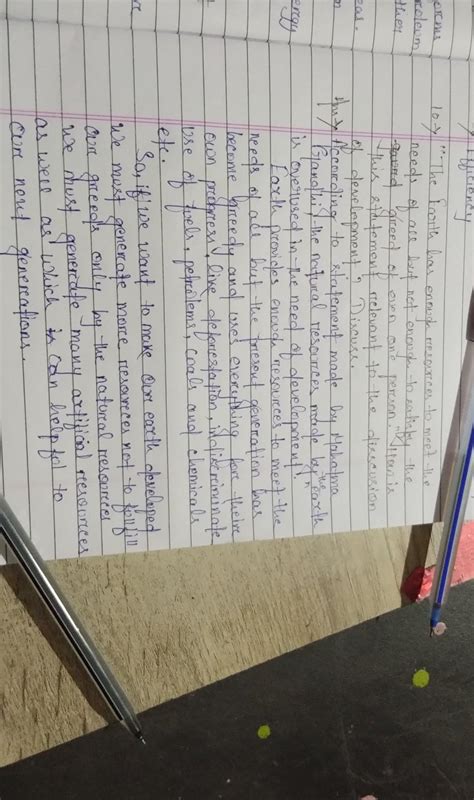 10→ "The Earth has enough resources to meet the
needs of all but not enough to satisfy the
greed of even one person." How is
this statement relevant to the discussion
of development? Discuss.
Ans→ According to statement made by Mahatma
Gandhi, the natural resources made by the Earth
is overused in the need of development.
Earth provides enough resources to meet the
needs of all but the present generation has
become greedy and uses everything for their
own progress, like deforestation, indiscriminate
use of fuels, petroleums, coals and chemicals
etc.
So, if we want to make our earth developed
we must generate more resources not to fulfill
our greeds only by the natural resources
we must generate many artificial resources
as were as which is can helpful to
our next generations.
ear.
energy